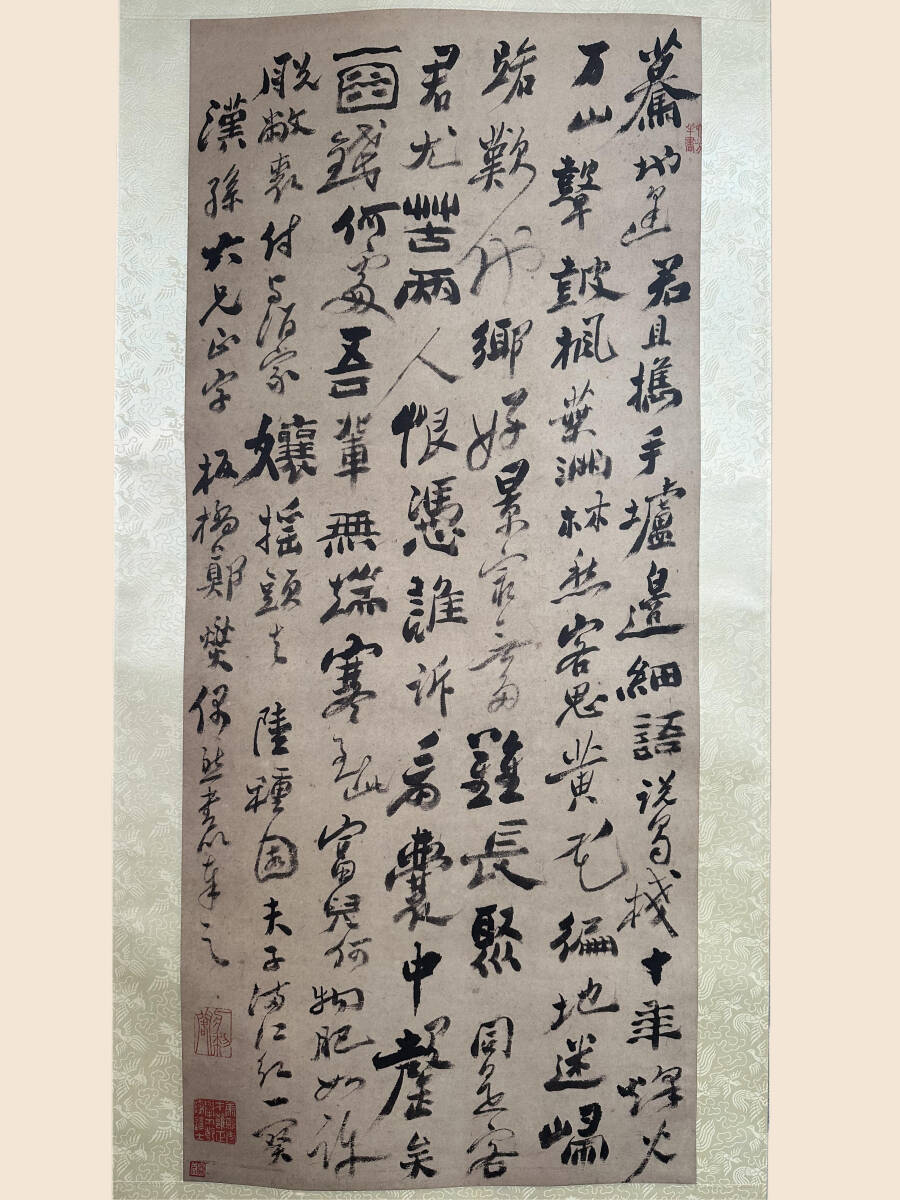 驀地逢君且攜手壚邊細語說蜀棧十年烽火
万山鼙皷楓葉滿林愁客思黄花徧地迷歸
路歎他鄉好景最無多難長聚同是客
君尤苦兩人恨憑誰訴看囊中罄矣
酒錢何處吾輩無端寒至此富兒何物肥如許
脫敝裘付与酒家孃摇頭去 陸種園夫子滿江紅一闋
漢孫大兄正字 板橋鄭燮偶然書以奉之